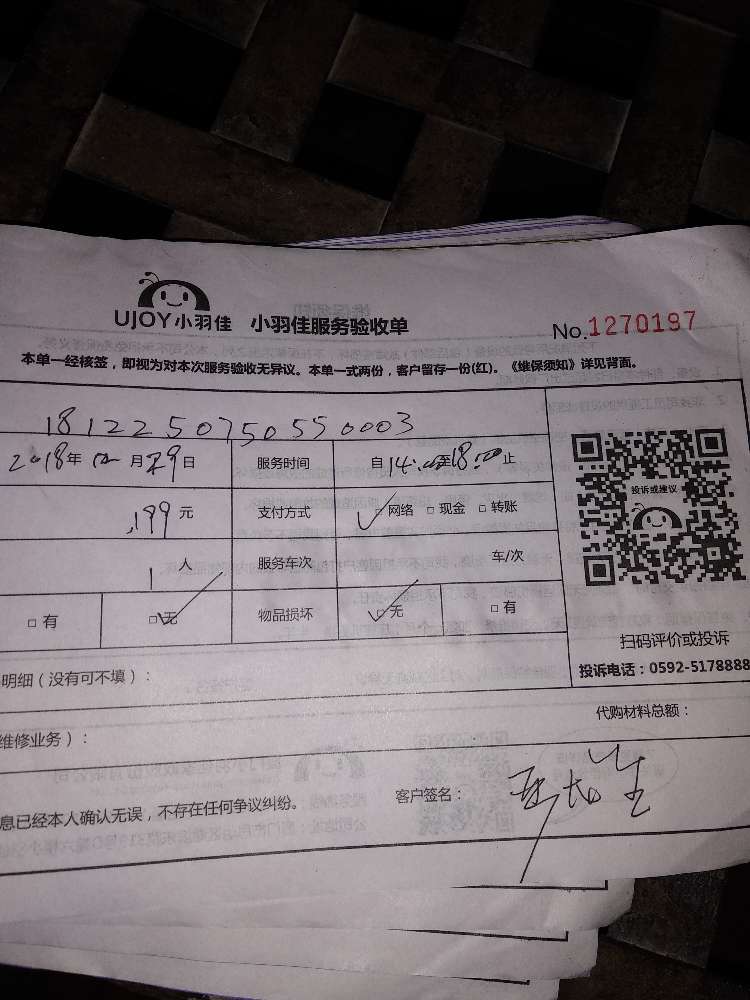 UJOY小羽佳 小羽佳服务验收单 No.1270197
本单一经核签，即视为对本次服务验收无异议。本单一式两份，客户留存一份(红)。《维保须知》详见背面。
1812250750550003
2018年12月29日 服务时间 自14:00至18:00止
199元 支付方式 □网络 □现金 □转账
投诉或建议
1人 服务车次 车/次
□有 □无 物品损坏 □无 □有
扫码评价或投诉
明细（没有可不填）： 投诉电话：0592-5178888
代购材料总额：
维修业务）：
息已经本人确认无误，不存在任何争议纠纷。 客户签名：